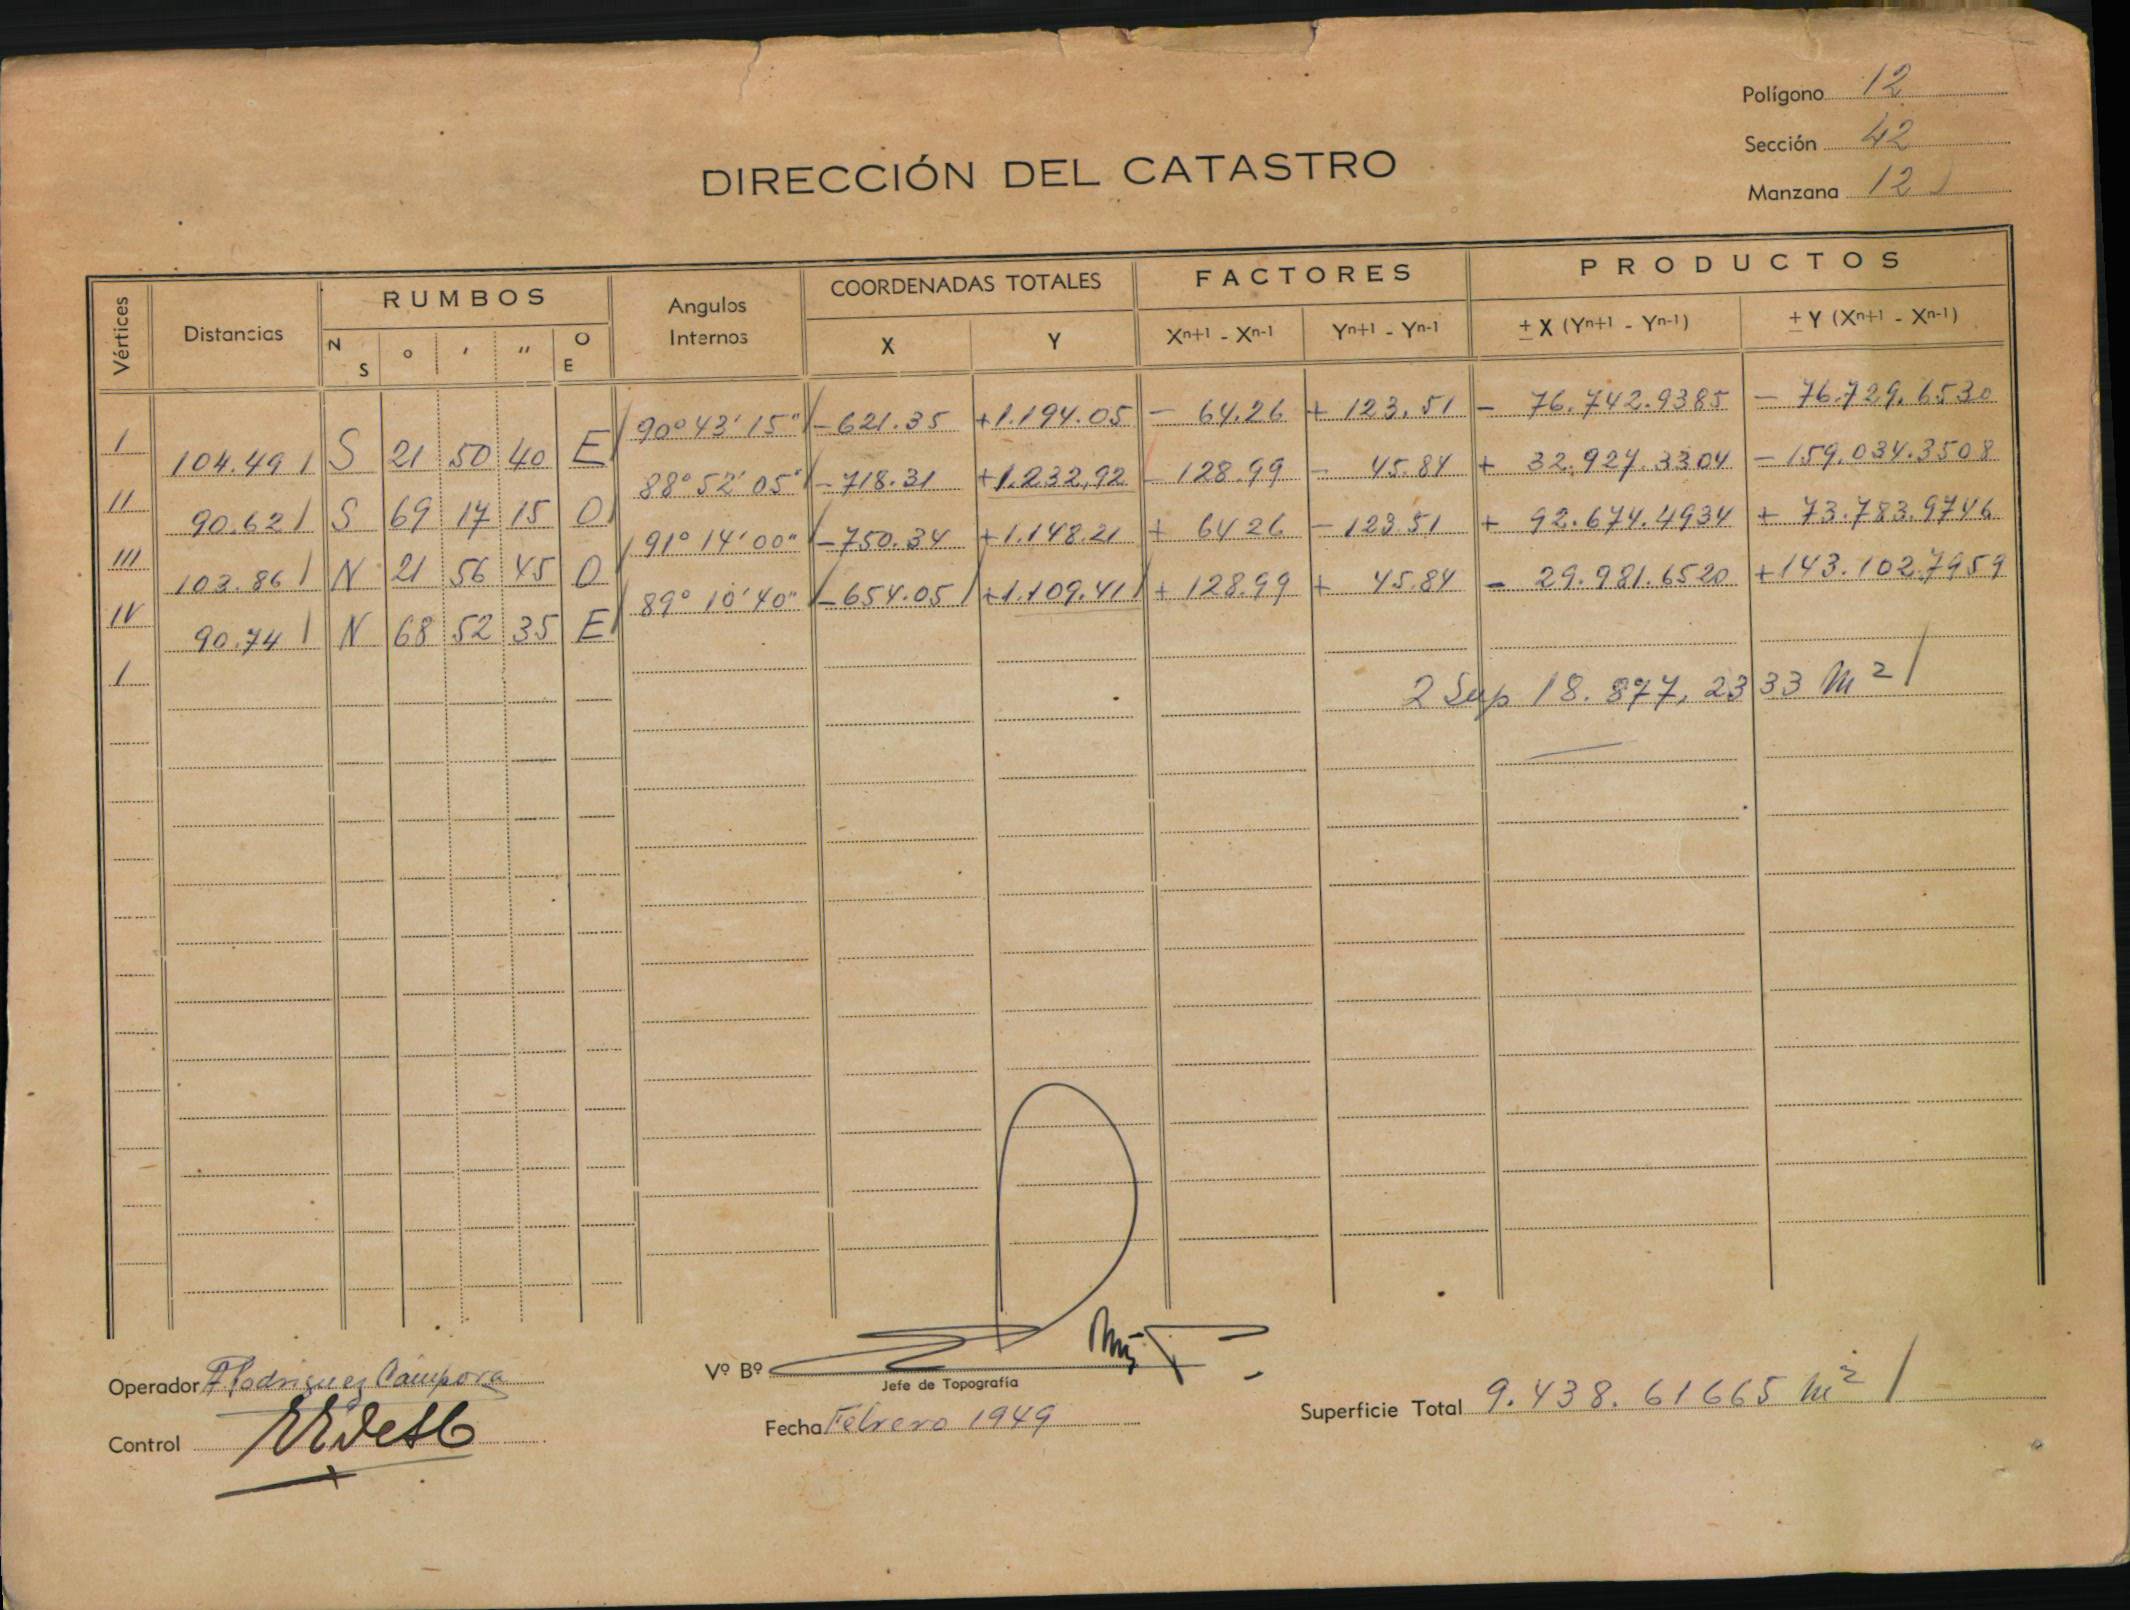 Polígono 12
Sección 42
Manzana 12
DIRECCIÓN DEL CATASTRO
Vértices Distancias RUMBOS Angulos Internos COORDENADAS TOTALES FACTORES PRODUCTOS
N S ° ' " O E X Y Xn+1 - Xn-1 Yn+1 - Yn-1 ± X (Yn+1 - Yn-1) ± Y (Xn+1 - Xn-1)
90° 43' 15" - 621.35 + 1.194.05 - 64.26 + 123.51 - 76.742.9385 - 76.729.6530
I 104.49 S 21 50 40 E
88° 52' 05" - 718.31 + 1.232,92 - 128.99 - 45.84 + 32.927.3304 - 159.034.3508
II 90.62 S 69 17 15 O
91° 14' 00" - 750.34 + 1.148.21 + 64 26 - 123.51 + 92.674.4934 + 73.783.9746
III 103.86 N 21 56 45 O
89° 10' 40" - 654.05 + 1.109.41 + 128.99 + 45.84 - 29.981.6520 + 143.102.7959
IV 90.74 N 68 52 35 E
I
2 Sup 18.877,2333 m²
Operador Rodriguez Campora
Control
Vº Bº
Jefe de Topografía
Fecha Febrero 1949
Superficie Total 9.438.61665 m²